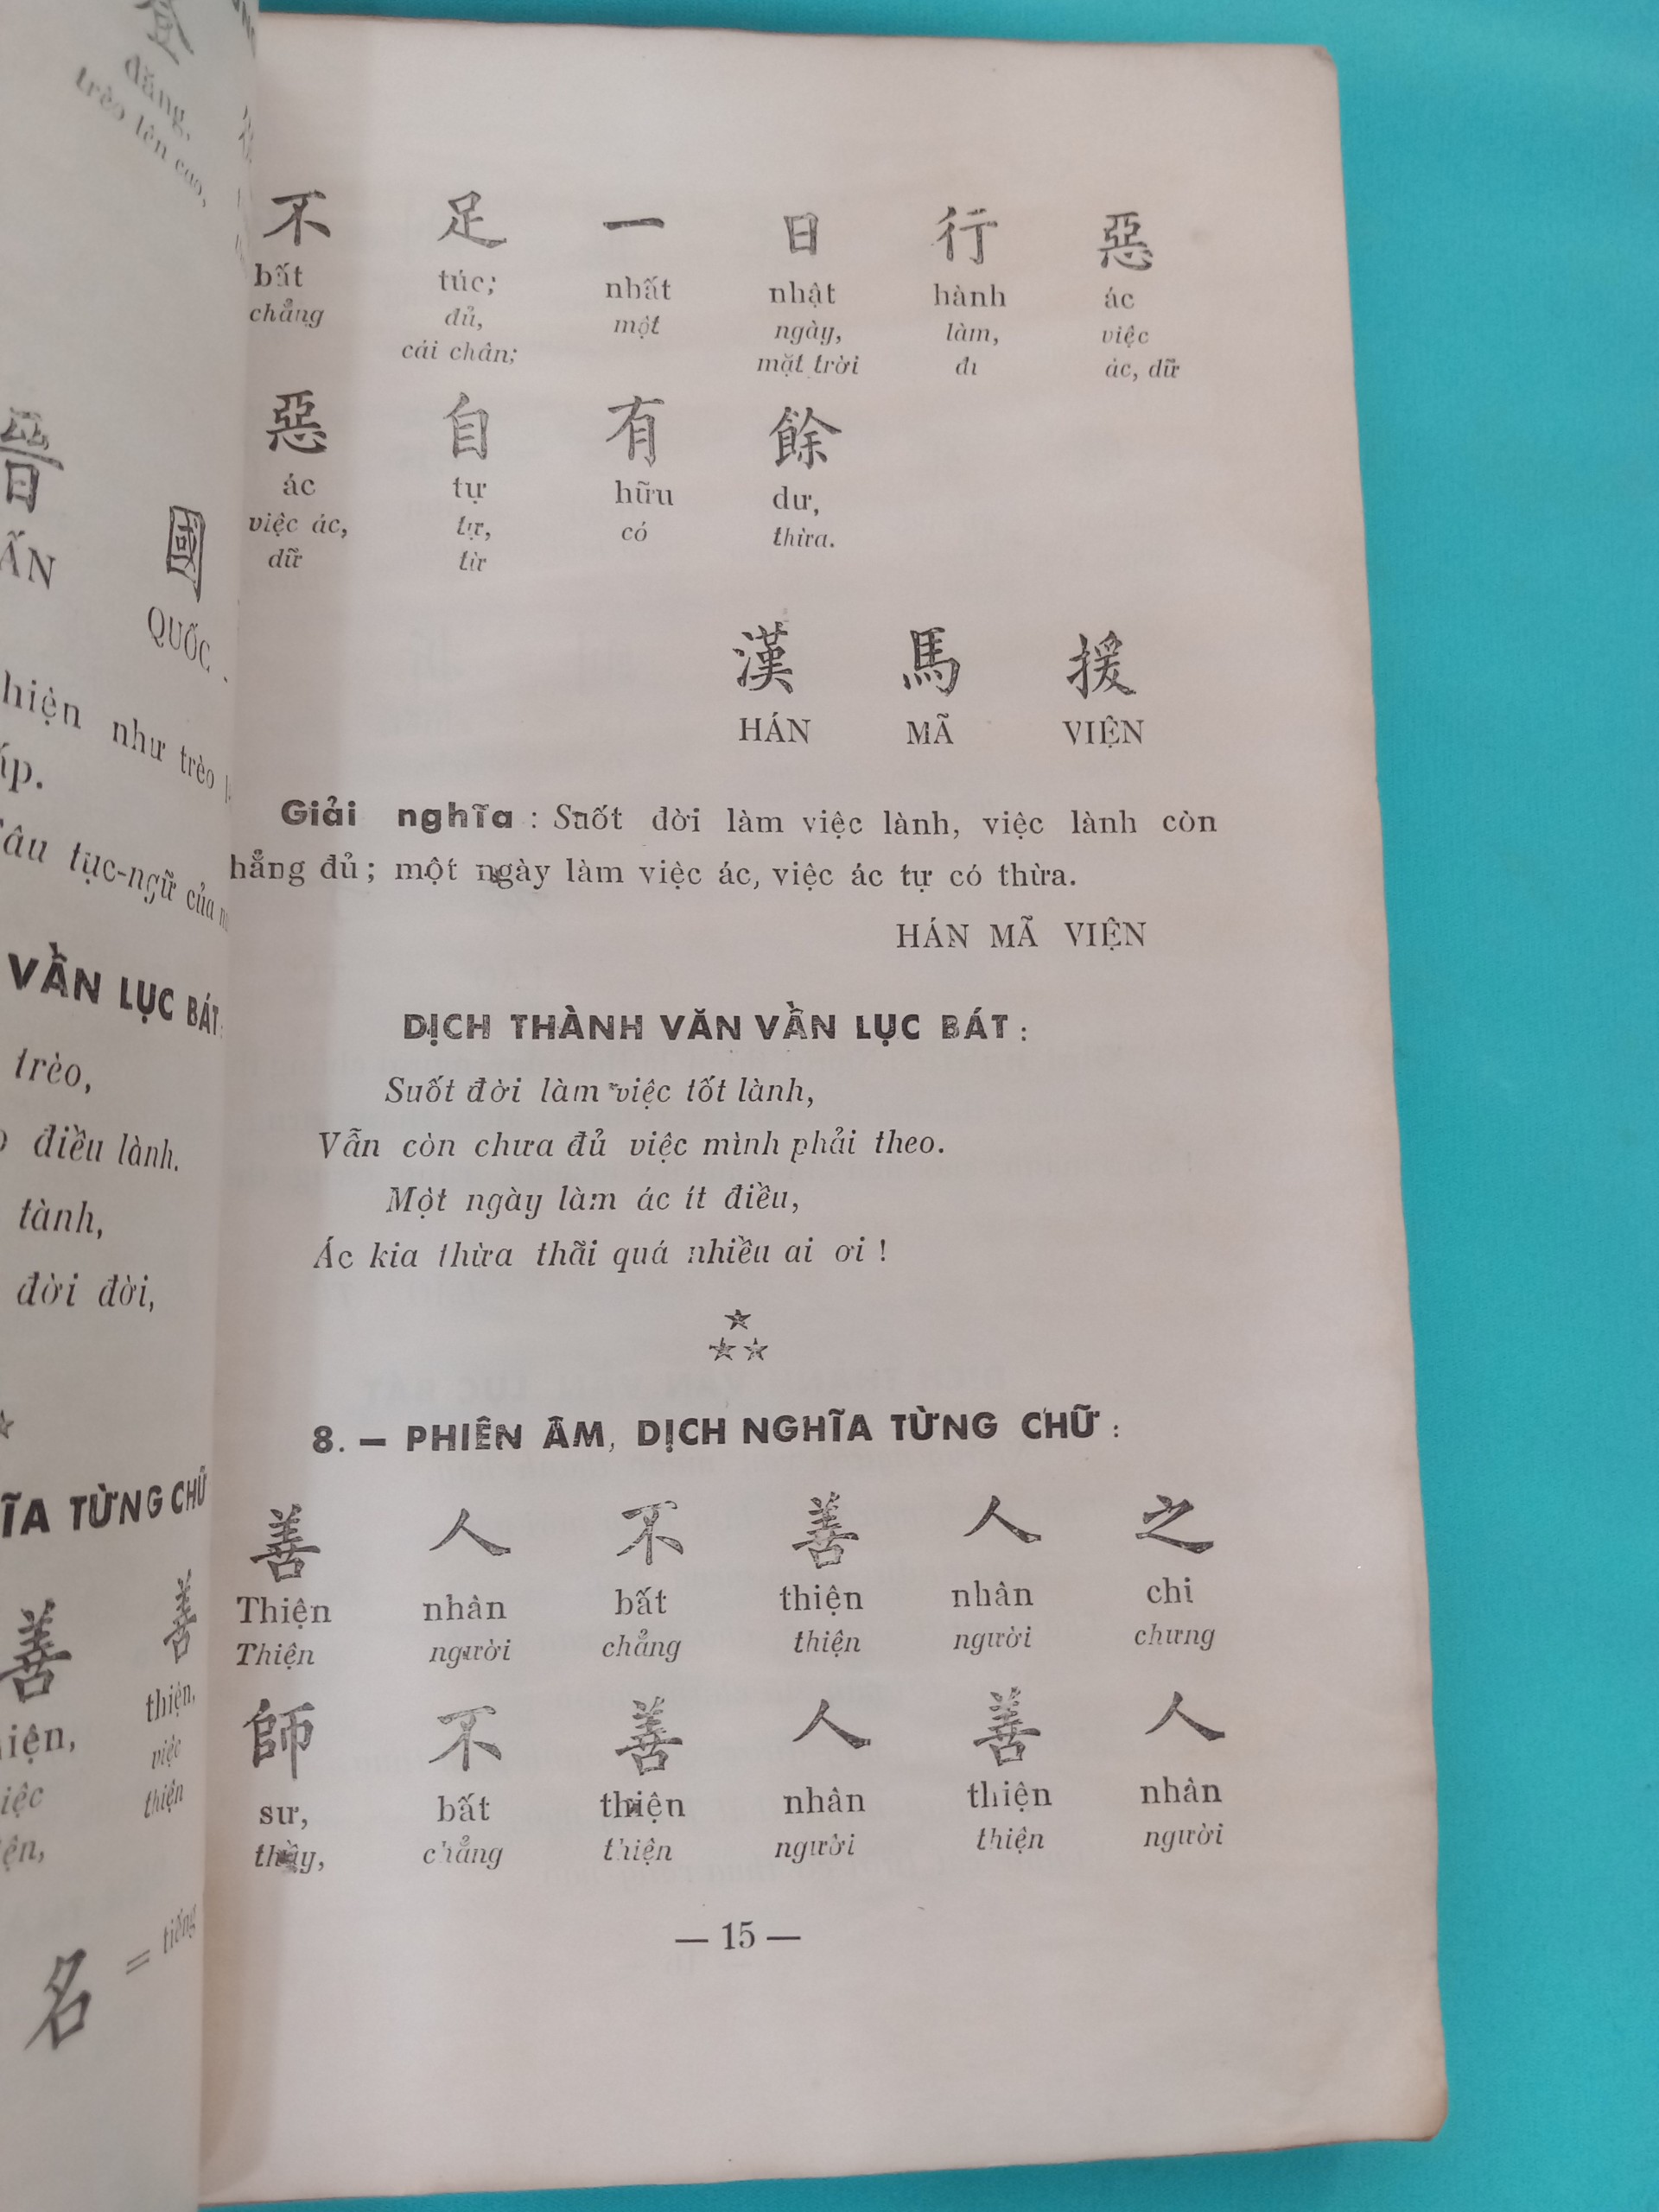 đăng,
trèo lên cao,
晉
ẤN
國
QUỐC
hiện như trèo
ấp.
âu tục-ngữ của
VẦN LỤC BÁT
trèo,
điều lành.
tành,
đời đời,
ĨA TỪNG CHỮ
善 善
iện, thiện,
iệc việc
ện, thiện
名 = tiếng
不 足 一 日 行 惡
bất túc; nhất nhật hành ác
chẳng đủ, một ngày, làm, việc
cái chân; mặt trời đi ác, dữ
惡 自 有 餘
ác tự hữu dư,
việc ác, tự, có thừa.
dữ từ
漢 馬 援
HÁN MÃ VIỆN
Giải nghĩa : Suốt đời làm việc lành, việc lành còn
hẳng đủ ; một ngày làm việc ác, việc ác tự có thừa.
HÁN MÃ VIỆN
DỊCH THÀNH VĂN VẦN LỤC BÁT :
Suốt đời làm việc tốt lành,
Vẫn còn chưa đủ việc mình phải theo.
Một ngày làm ác ít điều,
Ác kia thừa thãi quá nhiều ai ơi !
8. — PHIÊN ÂM, DỊCH NGHĨA TỪNG CHỮ :
善 人 不 善 人 之
Thiện nhân bất thiện nhân chi
Thiện người chẳng thiện người chưng
師 不 善 人 善 人
sư, bất thiện nhân thiện nhân
thầy, chẳng thiện người thiện người
— 15 —